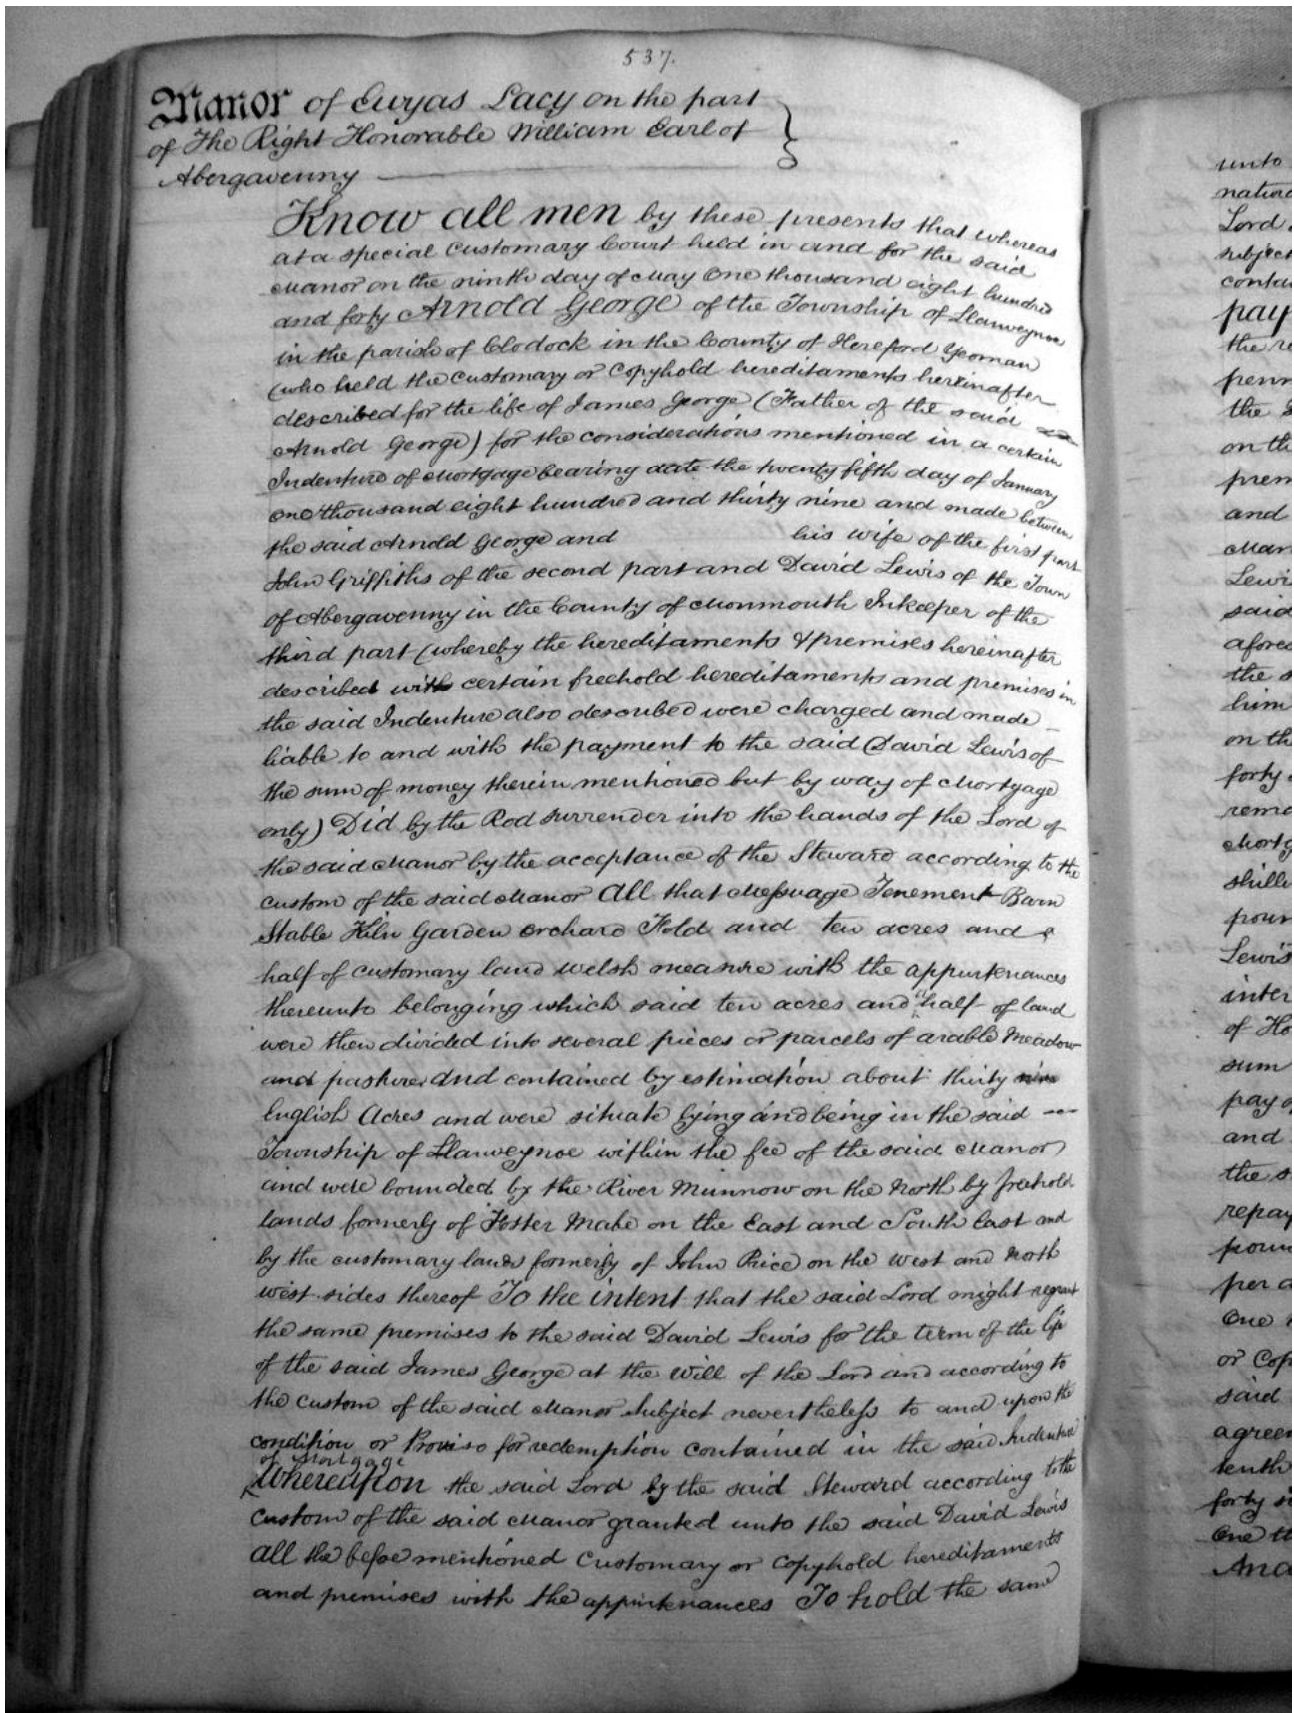 537.
Manor of Ewyas Lacy on the part
of The Right Honorable William Earl of
Abergavenny
Know all men by these presents that whereas
at a special Customary Court held in and for the said
Manor on the ninth day of May One thousand eight hundred
and forty Arnold George of the Township of Llanveynoe
in the parish of Clodock in the County of Hereford Yeoman
(who held the Customary or Copyhold hereditaments hereinafter
described for the life of James George (Father of the said
Arnold George) for the considerations mentioned in a certain
Indenture of Mortgage bearing date the twenty fifth day of January
one thousand eight hundred and thirty nine and made between
the said Arnold George and his wife of the first part
John Griffiths of the second part and David Lewis of the Town
of Abergavenny in the County of Monmouth Inkeeper of the
third part (whereby the hereditaments & premises hereinafter
described with certain freehold hereditaments and premises in
the said Indenture also described were charged and made
liable to and with the payment to the said David Lewis of
the sum of money therein mentioned but by way of Mortgage
only) Did by the Rod surrender into the hands of the Lord of
the said Manor by the acceptance of the Steward according to the
custom of the said Manor All that Messuage Tenement Barn
Stable Kiln Garden Orchard Fold and ten acres and a
half of customary land welsh measure with the appurtenances
thereunto belonging which said ten acres and a half of land
were then divided into several pieces or parcels of arable Meadow
and pasture and contained by estimation about thirty nine
English Acres and were situate lying and being in the said
Township of Llanveynoe within the fee of the said Manor
and were bounded by the River Munnow on the North by freehold
lands formerly of Foster Mabe on the East and South East and
by the customary lands formerly of John Price on the West and North
west sides thereof To the intent that the said Lord might regrant
the same premises to the said David Lewis for the term of the life
of the said James George at the Will of the Lord and according to
the custom of the said Manor Subject nevertheless to and upon the
condition or Proviso for redemption contained in the said Indenture
of Mortgage
Whereupon the said Lord by the said Steward according to the
Custom of the said Manor granted unto the said David Lewis
all the before mentioned Customary or Copyhold hereditaments
and premises with the appurtenances To hold the same
unto
Lord
pay
the
on the
and
Lewis
said
the
him
on the
forty
Lewis
inter
of
sum
pay
and
the
repay
per
One
or
said
tenth
forty
One